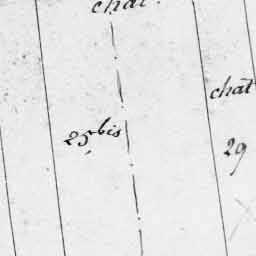 chat.
chat
25 bis
29